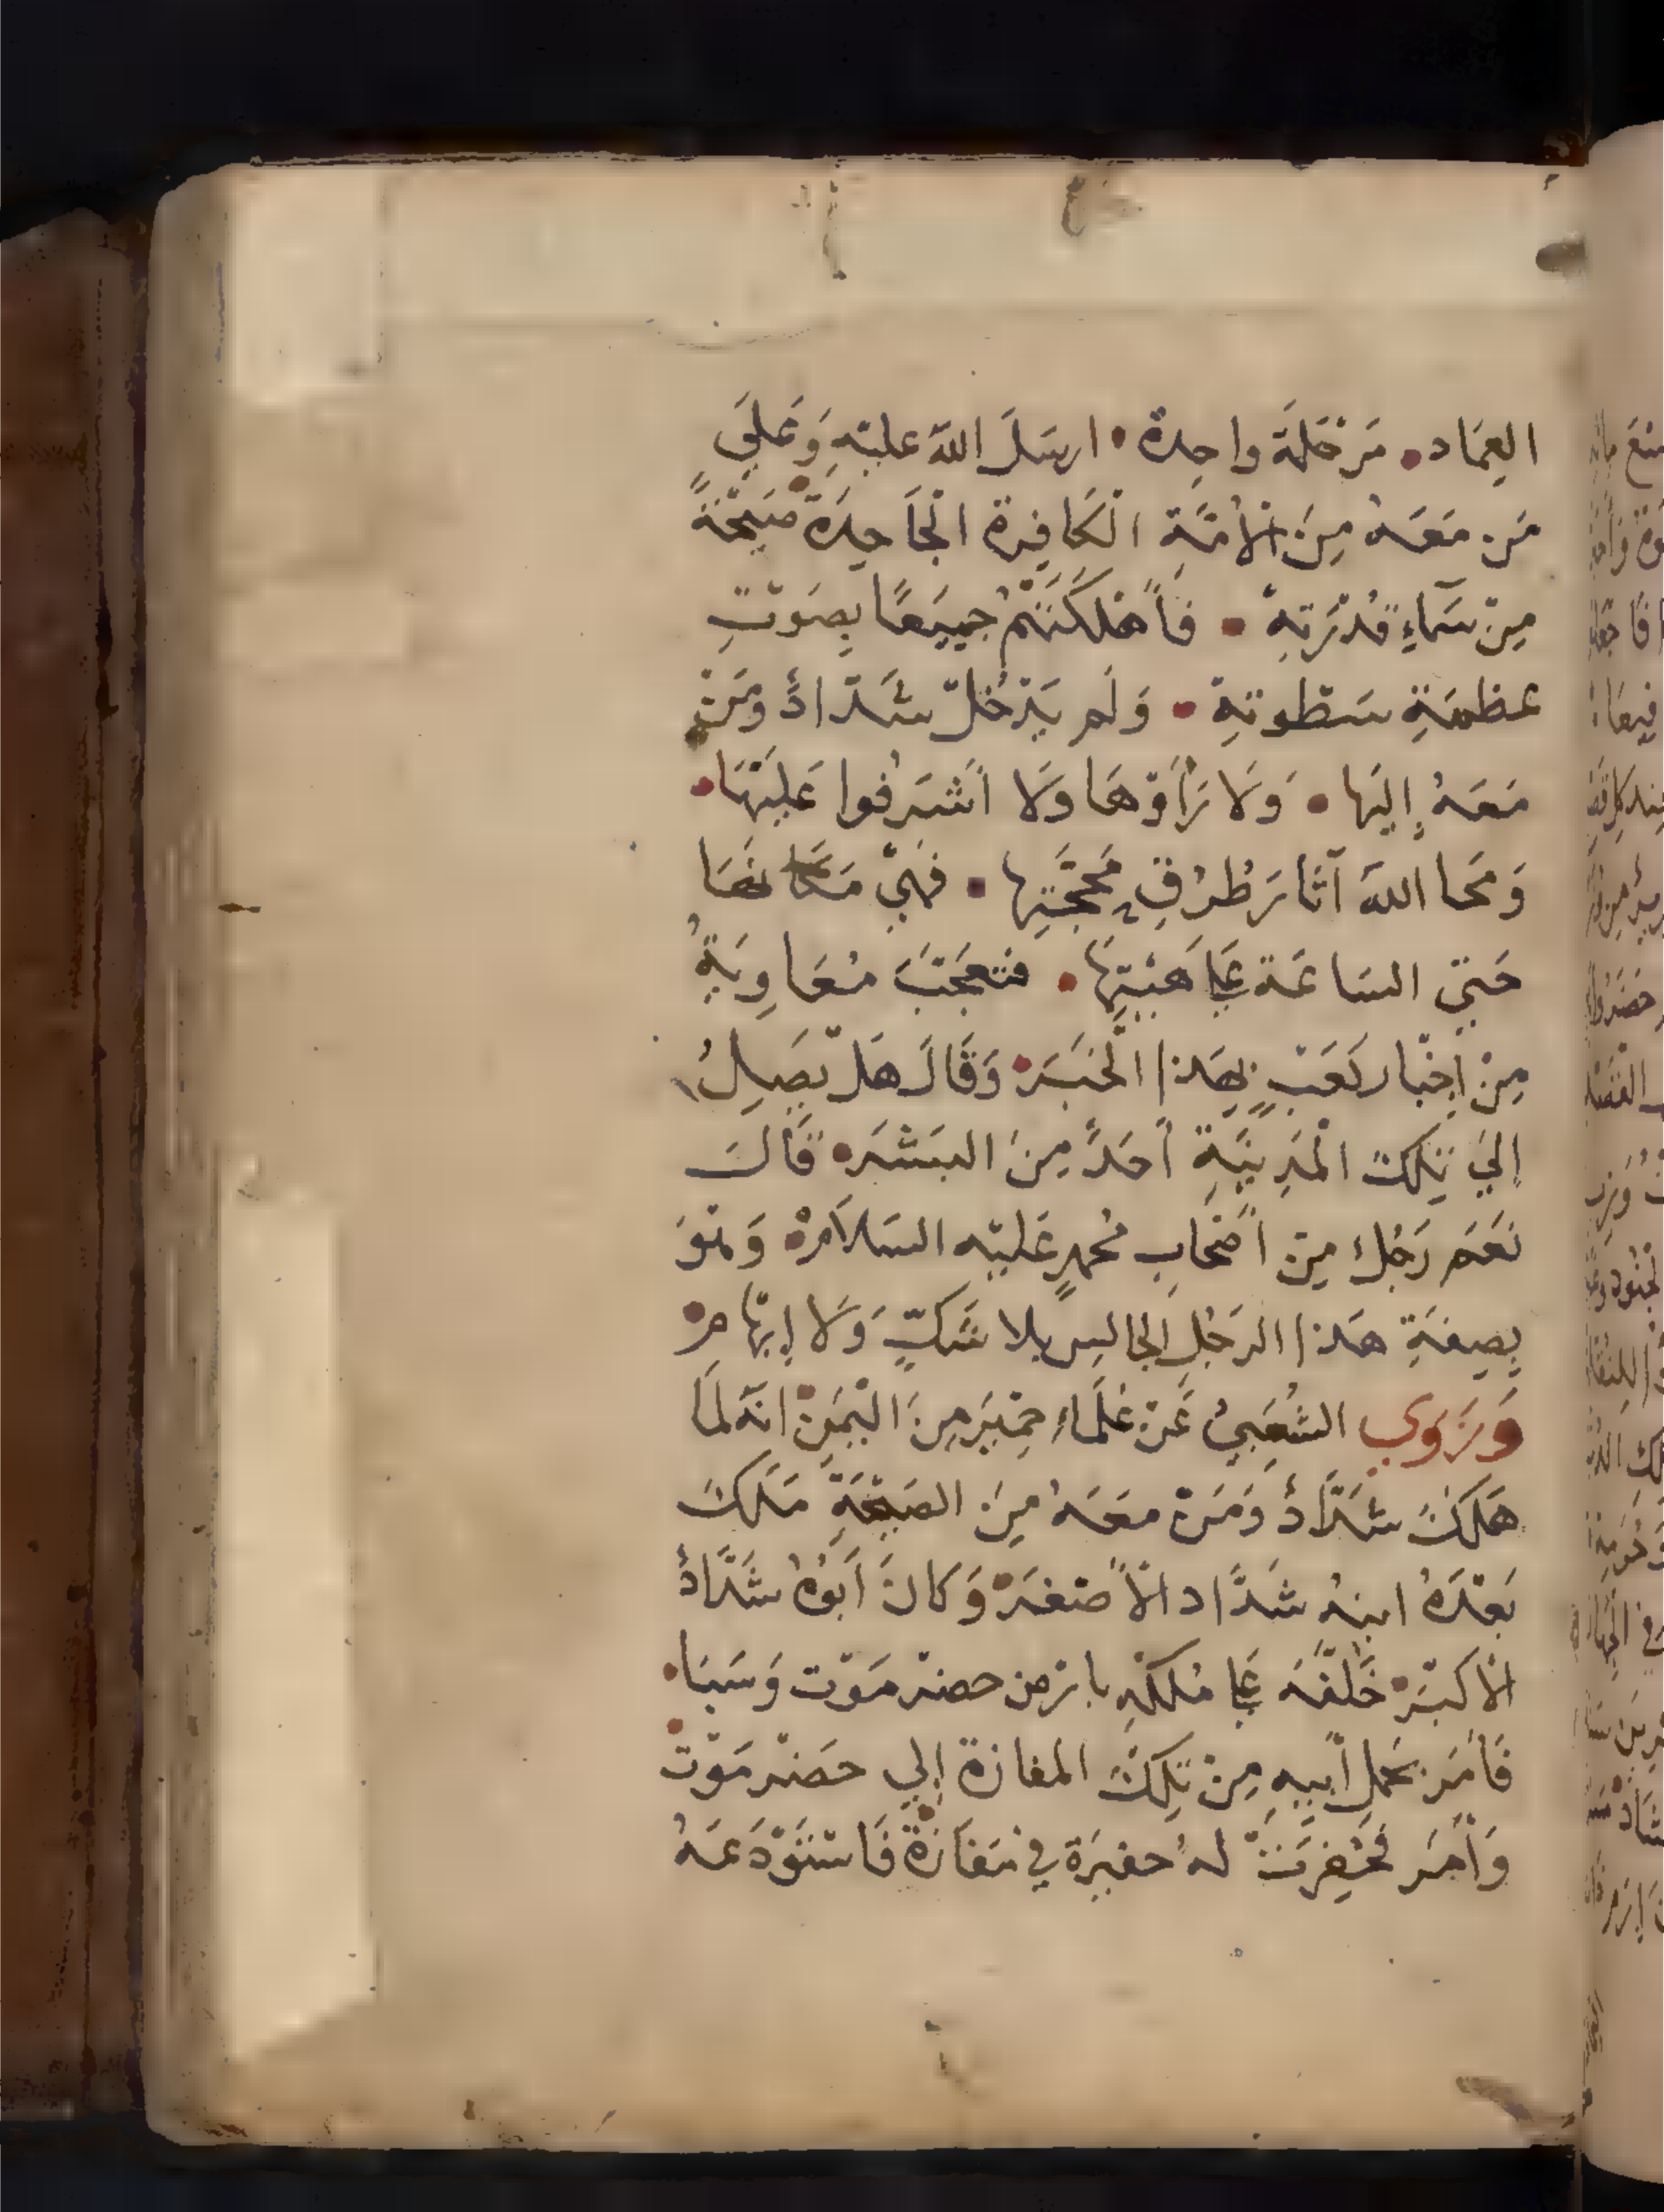 العِمَاد • مَرْحَلَةً واحِدة • ارسَلَ اللّه عليْهِ وَعَلَي
مَن مَعَهُ مِنَ الأُمَّةِ الْكَافِرة الْجَاحِدَة • صَيْحَةً
مِنْ سَمَاءِ قُدْرَتِهِ • فَأَهْلَكَتْهُمْ جميَعًا بِصَوْتِ
عظمَةِ سَطْوتِهِ • وَلَم يَدْخُلْ شَدَّادُ وَمَنْ
مَعَهُ إِليَها • وَلَا رَأَوْهَا وَلَا أَشْرَفُوا عَلَيْهَا •
وَمَحَا اللّه آثَارَ طُرُقِ مَحَجَّتِها • فَهِيَ مَكَانَهَا
حَتيَّ السَاعَة عَلَي هَيْئتِهَا • فتعَجَّبَ مُعَاوِيَةُ
مِنْ اخْبَار كَعْبٍ بِهَذا الْخَبَرَ • وَقَالَ هَلْ يَصِلُ
إِليَ تِلْكَ الْمَدِينَةِ أَحَدٌ مِنَ البَشَرِ • قَالَ
نَعَم رَجُلٌ مِنْ أَصْحَابِ مُحمدٍ عَليْهِ السَلَامْ • وَهُوَ
بِصِفَةِ هَذا الرَجُلِ الجالِسِ بلا شَكٍّ وَلَا إِبْهَام •
وَرَوي الشُعَبيُ عَنْ عُلَمَاءِ حِمْيَر مِنَ الْيَمَنِ • انَّهُ لَمَا
هَلَكَ شَدَّادُ وَمَنْ معَهُ مِنَ الصَيْحَةِ مَلَكَ
بَعْدَهُ ابنهُ شَدَّاد الأَصْغَر • وَكَانَ أَبُوهُ شَدَّادُ
الأكبَر • خَلَّفَهُ عَلَي مُلكِهِ بارْض حضرَمَوْت وَسَبَا •
فَأَمَرَ بِحَملِ أَبيهِ مِنْ تِلْكَ المفازة إِلي حَضْرمَوْت •
وَأَمَر فَحُفِرَتْ لهُ حفيرَة في مَفَازَة • فَاسْتَوْدَعَهُ